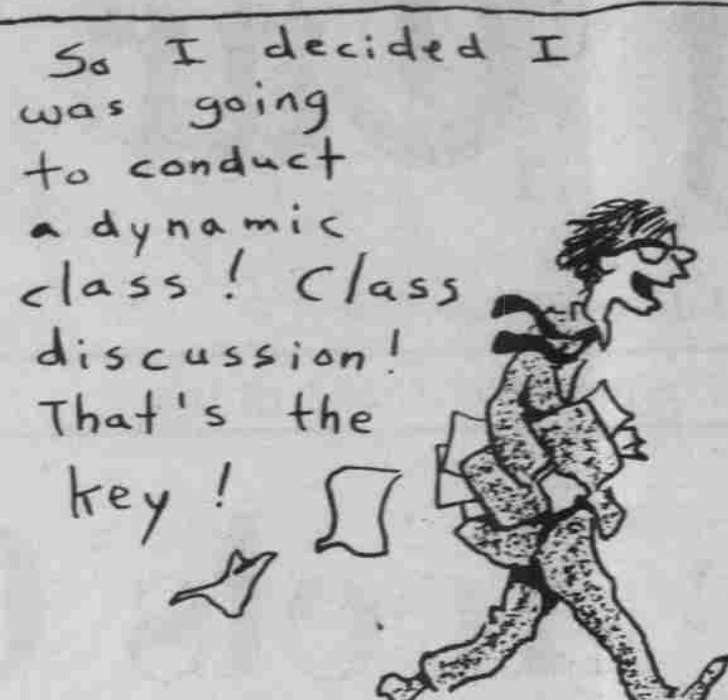 So I decided I
was going
to conduct
a dynamic
class! Class
discussion!
That's the
key!